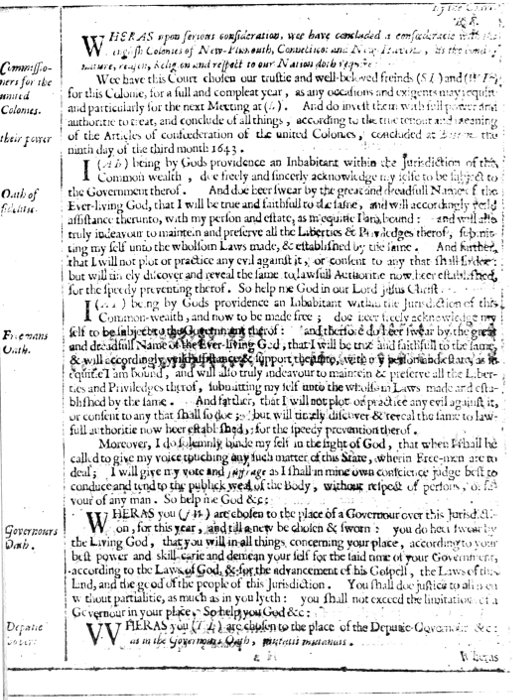 WHERAS upon serious consideration, wee have concluded a confœderatiō with the
english Colonies of New-Plimouth, Connecticot and New-Haven, as the bond of
nature, reason, Religion and respect to our Nation doth require:
Commissio-
ners for the
united
Colonies.
Wee have this Court chosen our trustie and well-beloved freinds (S I) and (W P)
for this Colonie, for a full and compleat year, as any occasions and exigents may require
and particularly for the next Meeting at (L). And do invest them with full power and
their power
authoritie to treat, and conclude of all things, according to the true tenour and meaning
of the Articles of confœderation of the united Colonies, concluded at Boston the
ninth day of the third month 1643.
Oath of
fidelitie.
I (A b) being by Gods providence an Inhabitant within the Jurisdiction of this
Common wealth, doe freely and sincerly acknowledge my selfe to be subject to
the Government therof. And doe heer swear by the great and dreadfull Name of the
Ever-living God, that I will be true and faithfull to the same, and will accordingly yeild
assistance therunto, with my person and estate, as in equitie I am bound: and will also
truly indeavour to maintein and preserve all the Liberties & Priviledges therof, submit-
ting my self unto the wholsom Laws made, & established by the same. And further,
that I will not plot or practice any evil against it, or consent to any that shall so doe:
but will timely discover and reveal the same to lawfull Authoritie now heer established,
for the speedy preventing therof. So help me God in our Lord Jesus Christ.
Freemans
Oath.
I ( ) being by Gods providence an Inhabitant within the Jurisdiction of this
Common-wealth, and now to be made free; doe heer freely acknowledge my
self to be subject to the Government therof: and therfore do heer swear by the great
and dreadfull Name of the Ever-living God, that I will be true and faithfull to the same,
& will accordingly yeild assistance & support therunto, with my person and estate, as in
equitie I am bound, and will also truly indeavour to maintein & preserve all the Liber-
ties and Priviledges therof, submitting my self unto the wholsom Laws made and esta-
blished by the same. And farther, that I will not plot or practice any evil against it,
or consent to any that shall so doe; but will timely discover & reveal the same to law-
full authoritie now heer established, for the speedy prevention therof.
Moreover, I do solemnly binde my self in the sight of God, that when I shall be
called to give my voice touching any such matter of this State, wherin Free-men are to
deal; I will give my vote and suffrage as I shall in mine own conscience judge best to
conduce and tend to the publick weal of the Body, without respect of persons, or fa-
vour of any man. So help me God &c:
Governours
Oath.
WHERAS you (J W) are chosen to the place of a Governour over this Jurisdicti-
on, for this year, and till a new be chosen & sworn: you do heer swear by
the Living God, that you will in all things concerning your place, according to your
best power and skill carie and demean your self for the said time of your Government,
according to the Laws of God, & for the advancement of his Gospell, the Laws of this
Land, and the good of the people of this Jurisdiction. You shall doe justice to all men
without partialitie, as much as in you lyeth: you shall not exceed the limitations of a
Governour in your place. So help you God &c:
Deputie
WHERAS you (T D) are chosen to the place of the Deputie-Governour &c:
as in the Governours Oath, mutatis mutandis.
Wheras